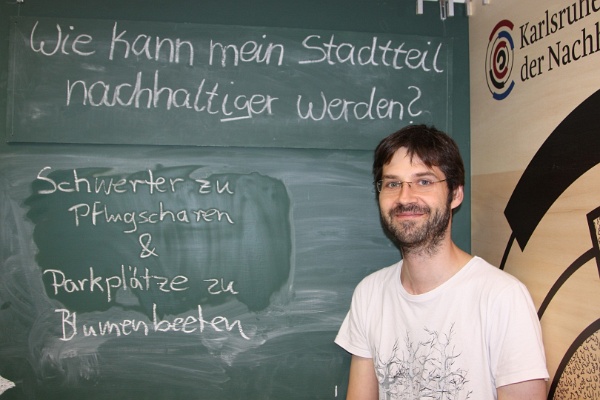 Wie kann mein Stadtteil
nachhaltiger werden?
Schwerter zu
Pflugscharen
&
Parkplätze zu
Blumenbeeten
Karlsruhe
der Nachh